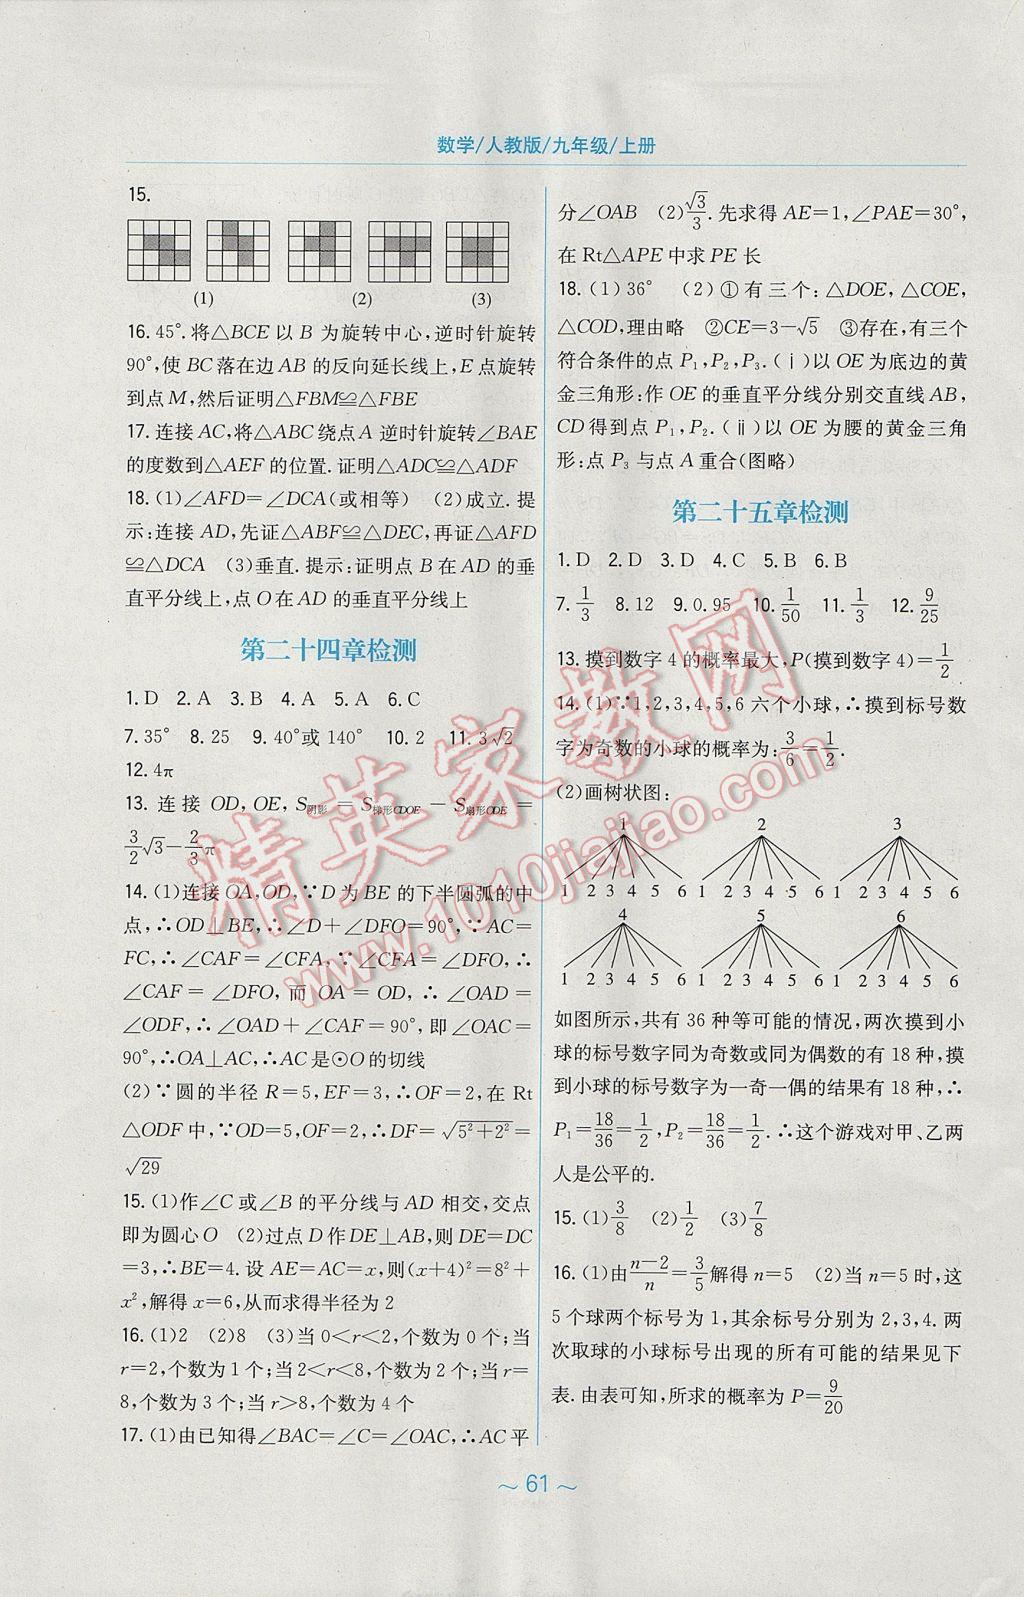 数学/人教版/九年级/上册
15.
(1) (2) (3)
16. 45°. 将△BCE 以 B 为旋转中心,逆时针旋转
90°,使 BC 落在边 AB 的反向延长线上,E 点旋转
到点 M,然后证明△FBM≌△FBE
17. 连接 AC,将△ABC 绕点 A 逆时针旋转∠BAE
的度数到△AEF 的位置. 证明△ADC≌△ADF
18. (1)∠AFD=∠DCA(或相等) (2)成立. 提
示:连接 AD,先证△ABF≌△DEC,再证△AFD
≌△DCA (3)垂直. 提示:证明点 B 在 AD 的垂
直平分线上,点 O 在 AD 的垂直平分线上
第二十四章检测
1. D 2. A 3. B 4. A 5. A 6. C
7. 35° 8. 25 9. 40°或 140° 10. 2 11. 3√2
12. 4π
13. 连接 OD,OE,S阴影 = S梯形CDOE − S扇形ODE =
3/2√3−2/3π
14. (1)连接 OA,OD,∵D 为 BE 的下半圆弧的中
点,∴OD⊥BE,∴∠D+∠DFO=90°,∵AC=
FC,∴∠CAF=∠CFA,∵∠CFA=∠DFO,∴
∠CAF=∠DFO,而 OA=OD,∴∠OAD=
∠ODF,∴∠OAD+∠CAF=90°,即∠OAC=
90°,∴OA⊥AC,∴AC 是⊙O 的切线
(2)∵圆的半径 R=5,EF=3,∴OF=2,在 Rt
△ODF 中,∵OD=5,OF=2,∴DF=√(5²+2²)=
√29
15. (1)作∠C 或∠B 的平分线与 AD 相交,交点
即为圆心 O (2)过点 D 作 DE⊥AB,则 DE=DC
=3,∴BE=4. 设 AE=AC=x,则(x+4)²=8²+
x²,解得 x=6,从而求得半径为 2
16. (1)2 (2)8 (3)当 0<r<2,个数为 0 个;当
r=2,个数为 1 个;当 2<r<8,个数为 2 个;当 r=
8,个数为 3 个;当 r>8,个数为 4 个
17. (1)由已知得∠BAC=∠C=∠OAC,∴AC 平
分∠OAB (2)√3/3. 先求得 AE=1,∠PAE=30°,
在 Rt△APE 中求 PE 长
18. (1)36° (2)①有三个:△DOE,△COE,
△COD,理由略 ②CE=3−√5 ③存在,有三个
符合条件的点 P₁,P₂,P₃. (ⅰ)以 OE 为底边的黄
金三角形:作 OE 的垂直平分线分别交直线 AB,
CD 得到点 P₁,P₂. (ⅱ)以 OE 为腰的黄金三角
形:点 P₃ 与点 A 重合(图略)
第二十五章检测
1. D 2. D 3. D 4. C 5. B 6. B
7. 1/3 8. 12 9. 0.95 10. 1/50 11. 1/3 12. 9/25
13. 摸到数字 4 的概率最大,P(摸到数字 4)=1/2
14. (1)∵1,2,3,4,5,6 六个小球,∴摸到标号数
字为奇数的小球的概率为:3/6=1/2.
(2)画树状图:
1 2 3
1 2 3 4 5 6 1 2 3 4 5 6 1 2 3 4 5 6
4 5 6
1 2 3 4 5 6 1 2 3 4 5 6 1 2 3 4 5 6
如图所示,共有 36 种等可能的情况,两次摸到小
球的标号数字同为奇数或同为偶数的有 18 种,摸
到小球的标号数字为一奇一偶的结果有 18 种,∴
P₁=18/36=1/2,P₂=18/36=1/2. ∴这个游戏对甲、乙两
人是公平的.
15. (1)3/8 (2)1/2 (3)7/8
16. (1)由(n−2)/n=3/5解得 n=5 (2)当 n=5 时,这
5 个球两个标号为 1,其余标号分别为 2,3,4. 两
次取球的小球标号出现的所有可能的结果见下
表. 由表可知,所求的概率为 P=9/20
~ 61 ~
精英家教网
www.1010jiajiao.com